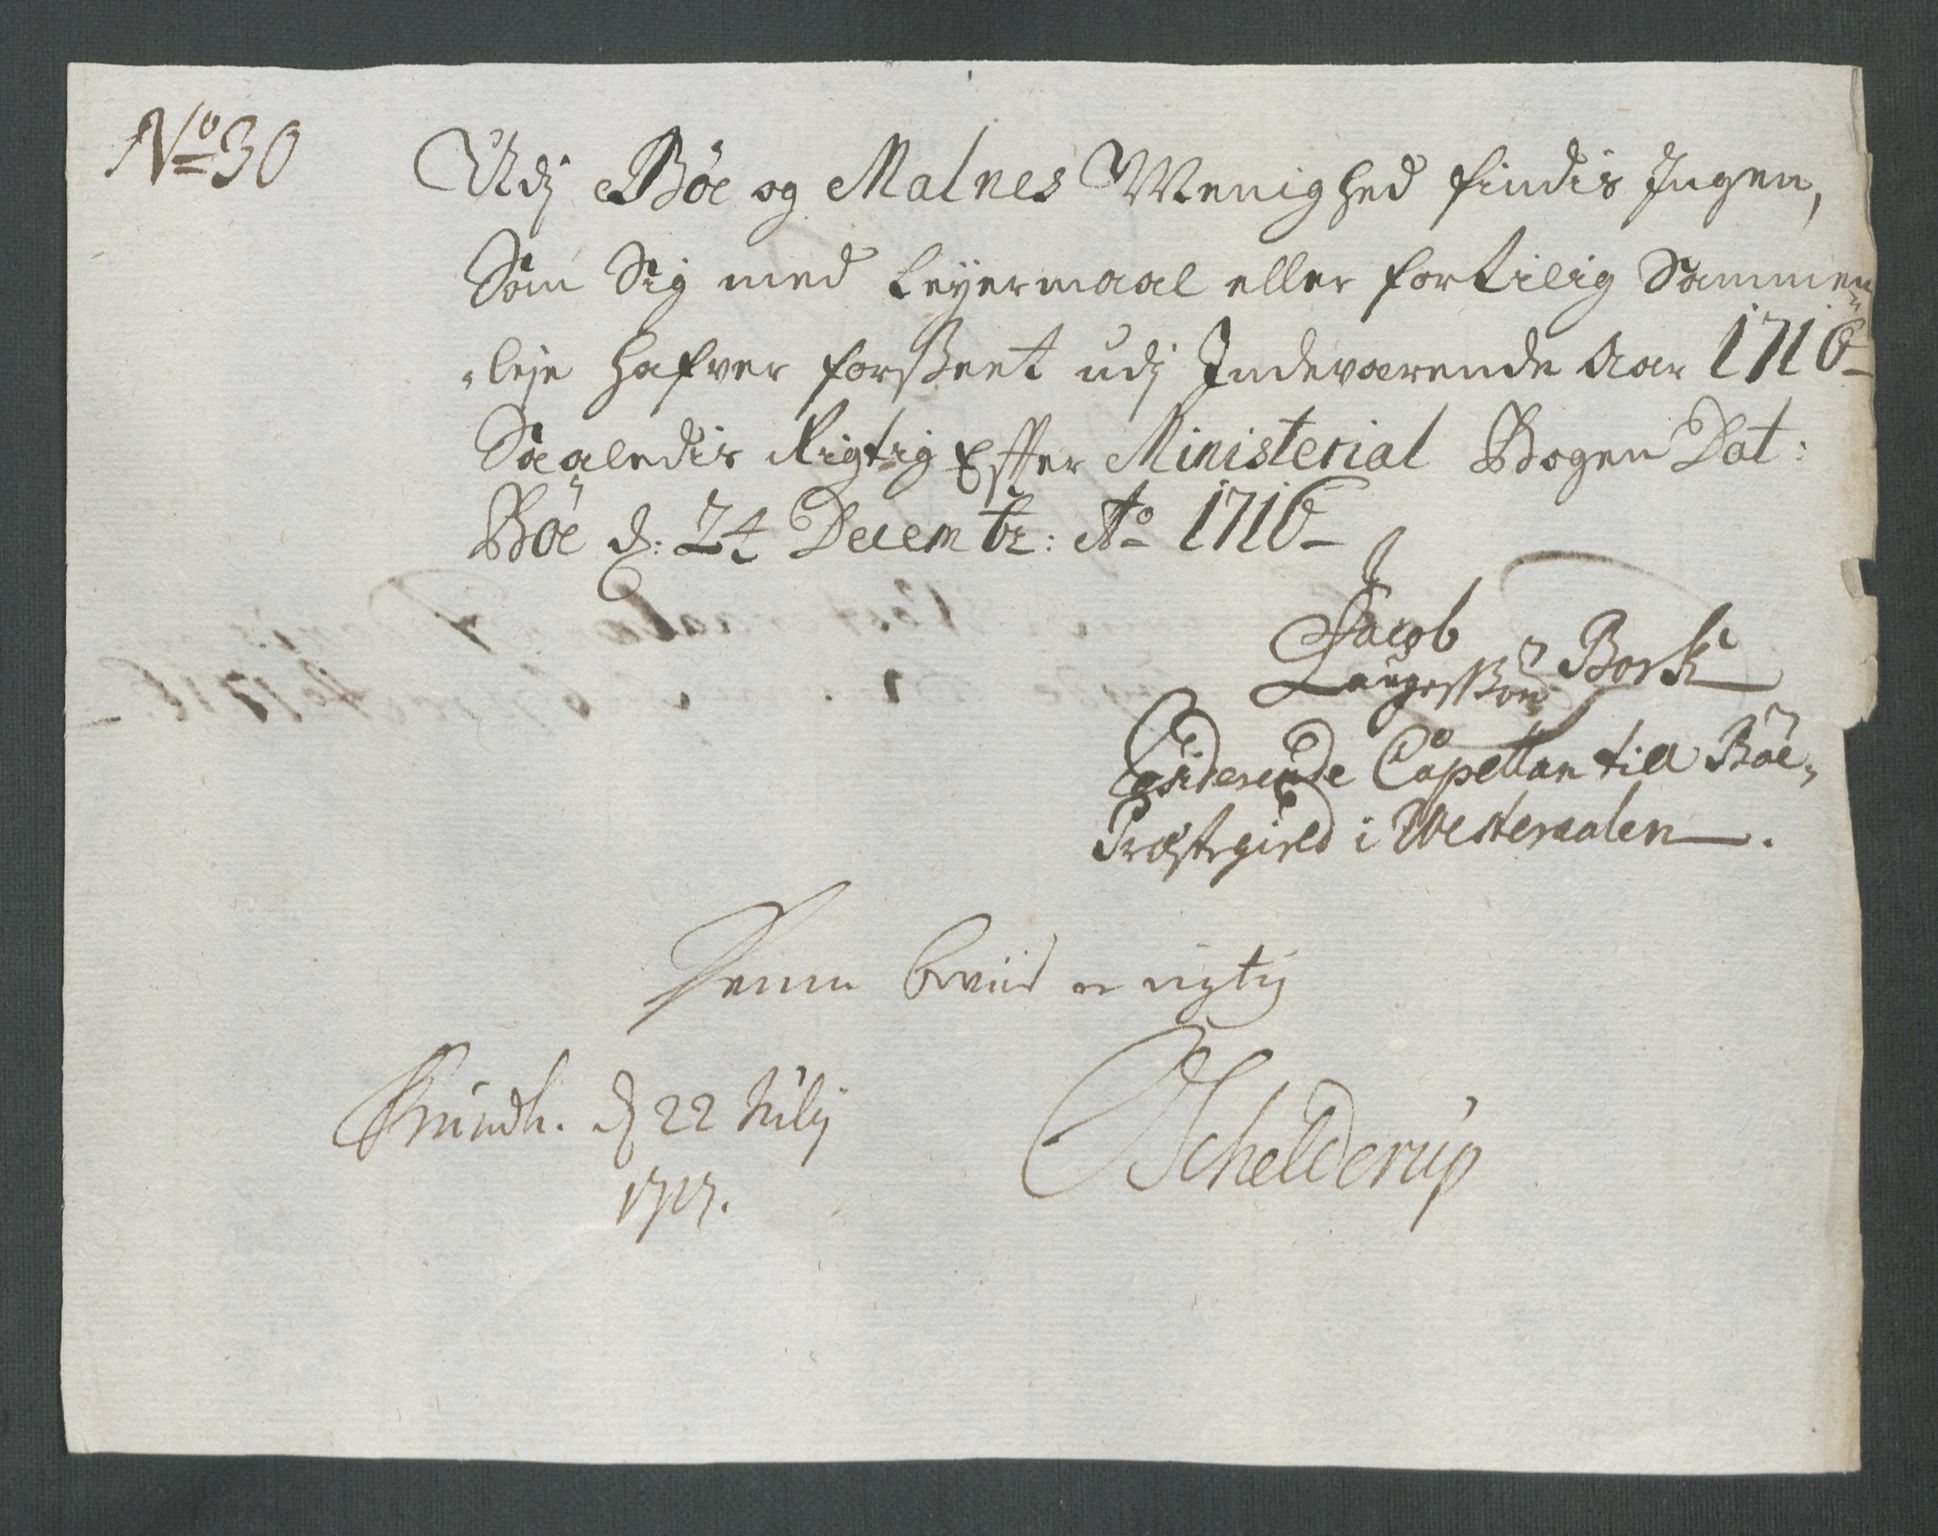 No 30
Udj Böe og Malnes Menighed findis Ingen,
Som Sig med Leyermaal eller fortilig Sammen
leje hafver forseet udj Indeværende Aar 1716
Saaledis Rigtig Efter Ministerial Bogen Dat:
Böe d: 24 Decembr: Ao 1716
Jacob
Laugessøn Bork
Residerende Capellan till Böe
Præstegield i Westeraalen.
Denne beviis er rigtig
Trundh. d 22 July
1717.
Schelderup